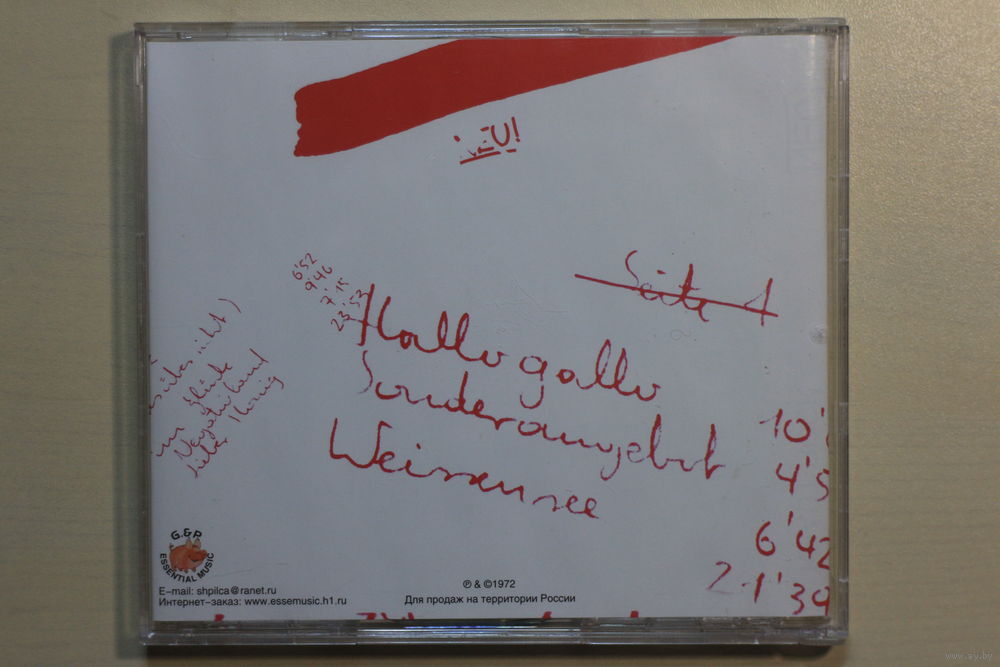 NEU!
Seite 1
6'52
9'46
7'15
23'53
Hallogallo
Sonderangebot
Weissensee
10'
4'5
6'42
21'39
im Glück
Negativland
Lieber Honig
G.&P.
ESSENTIAL MUSIC
E-mail: shpilca@ranet.ru
Интернет-заказ: www.essemusic.h1.ru
℗ & ©1972
Для продаж на территории России
www.ay.by